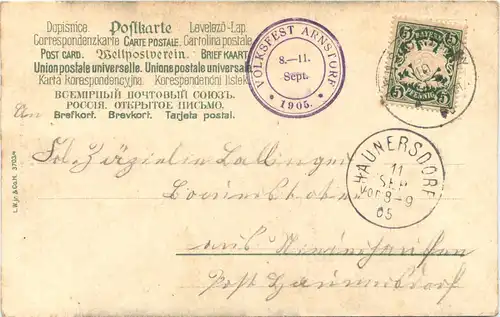 Dopisnice Postkarte Levelező-Lap
Correspondenzkarte CARTE POSTALE. Cartolina postale
POST CARD. Weltpostverein. BRIEFKAART
Union postale universelle. Unione postale universale
Karta Korespondencyjna. Korespondenčni listek
ВСЕМІРНЫЙ ПОЧТОВЫЙ СОЮЗЪ.
РОССІЯ. ОТКРЫТОЕ ПИСЬМО.
Brefkort. Brevkort. Tarjeta postal.
VOLKSFEST ARNSTORF
8.—11.
Sept.
* 1905. *
BAYERN
5 5
5 PFENNIG 5
An
Frl. Cäzilie Lallinger
HAUNERSDORF
11
SEP
VOR 8-9
05
aus
Post Haunersdorf